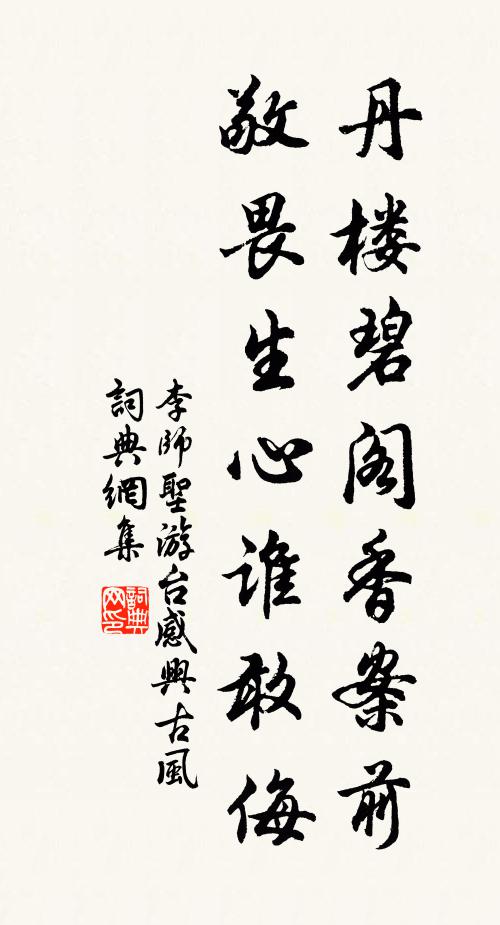 丹楼碧阁香案前
敬畏生心谁敢侮
李師聖游台感興古風
詞典網集
詞典
网印